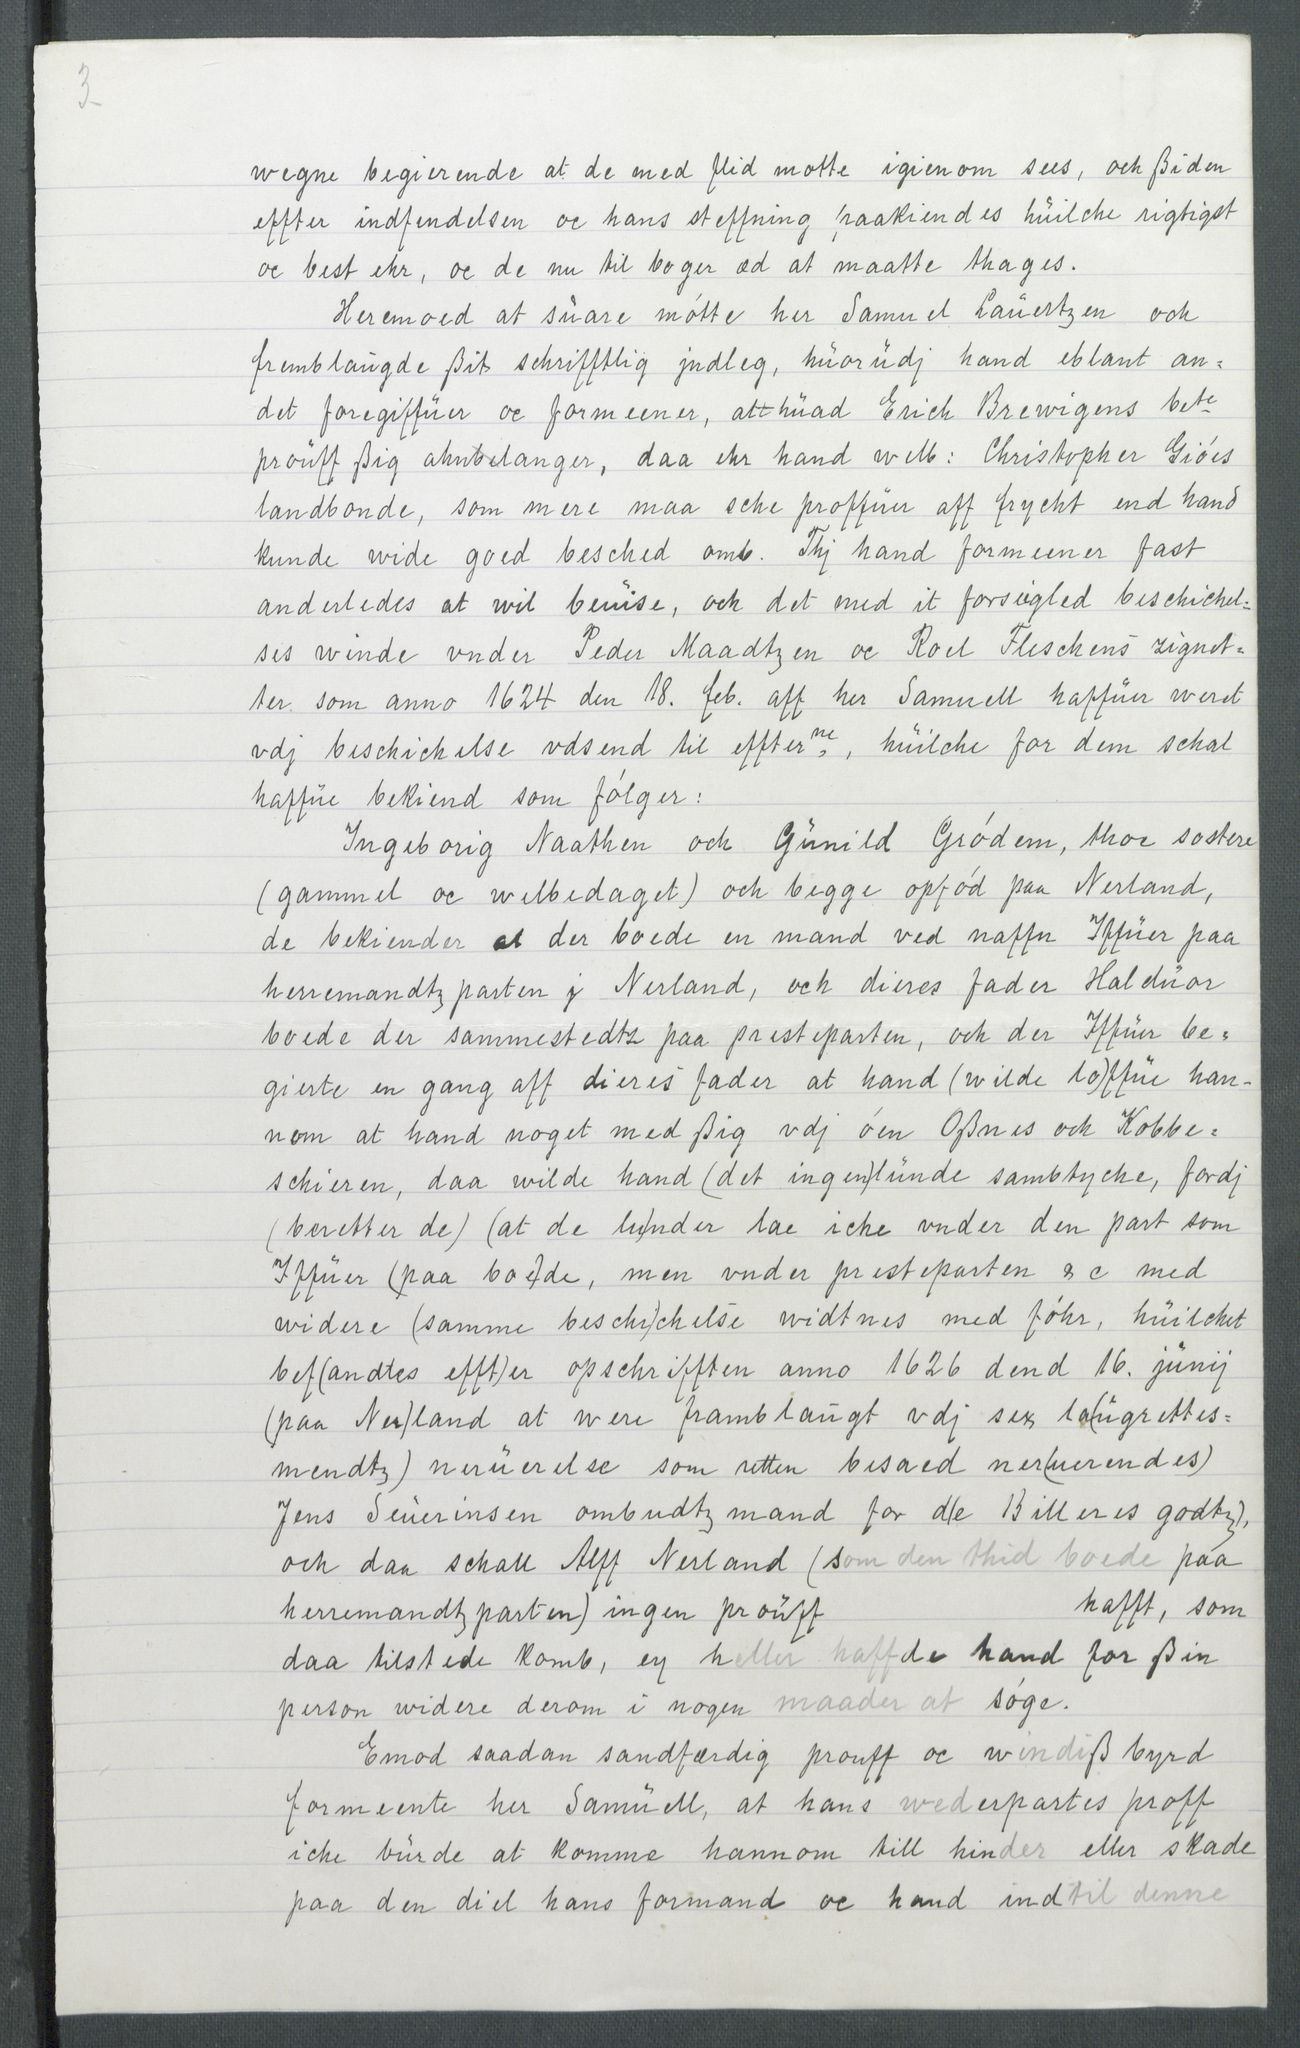 3
wegne begierende at de med flid motte igienom sees, och ßiden
effter indfendelsen oc hans steffning paakiendes hüilche rigtigst
oc best ehr, oc de nu til boger æd at maatte thages.
Heremoed at süare mótte her Samuel Laüertzen och
fremblaügde ßit schrifftlig jndleg, hüorüdj hand eblant an=
det foregiffüer oc formeener, att hüad Erich Brewigens bete
proüff ßig ahnbelanger, daa ehr hand welb: Christopher Gióes
landbonde, som mere maa sche proffüer aff frycht end hand
kunde wide goed besched omb. Thj hand formeener fast
anderledes at wil beüise, och det med it forsigled beschichel=
ses winde vnder Peder Maadtzen oc Roel Fleschens zignet=
ter som anno 1624 den 18. feb. aff her Samuell haffüer weret
vdj beschichelse vdsend til effterne, hüilche for dem schal
haffüe bekiend som fólger:
Ingeborig Naathen och Günild Gródem, thoe sostere
(gammel oc welbedaget) och begge opfód paa Nerland,
de bekiender at der boede en mand ved naffn Iffüer paa
herremandtz parten j Nerland, och dieres fader Haldüor
boede der sammestedtz paa presteparten, och der Iffüer be=
gierte en gang aff dieres fader at hand (wilde lo)ffüe han-
nom at hand noget med ßig vdj óen Oßnes och Kobbe=
schieren, daa wilde hand (det ingen)lünde sambtyche, fordj
(beretter de) (at de lu)nder lae iche vnder den part som
Iffüer (paa bo)ede, men vnder presteparten &c med
widere (samme beschi)chelse widtnes med fóhr, hüilchet
bef(andtes efft)er opschrifften anno 1626 dend 16. jünij
(paa Ner)land at were framblaügt vdj sex la(ügrettes=
mendtz) nerüerelse som retten besaed ner(uerendes)
Jens Seüerinsen ombudtzmand for d(e Billeres godtz),
och daa schall Alff Nerland (som den thid boede paa
herremandtzparten) ingen proüff hafft, som
daa tilstede komb, ey heller haffde hand for ßin
person widere derom i nogen maader at sóge.
Emod saadan sandfærdig prouff oc windiß byrd
formeente her Samüell, at hans wederpartes proff
iche bürde at komme hannom till hinder eller skade
paa den diel hans formand oc hand indtil denne